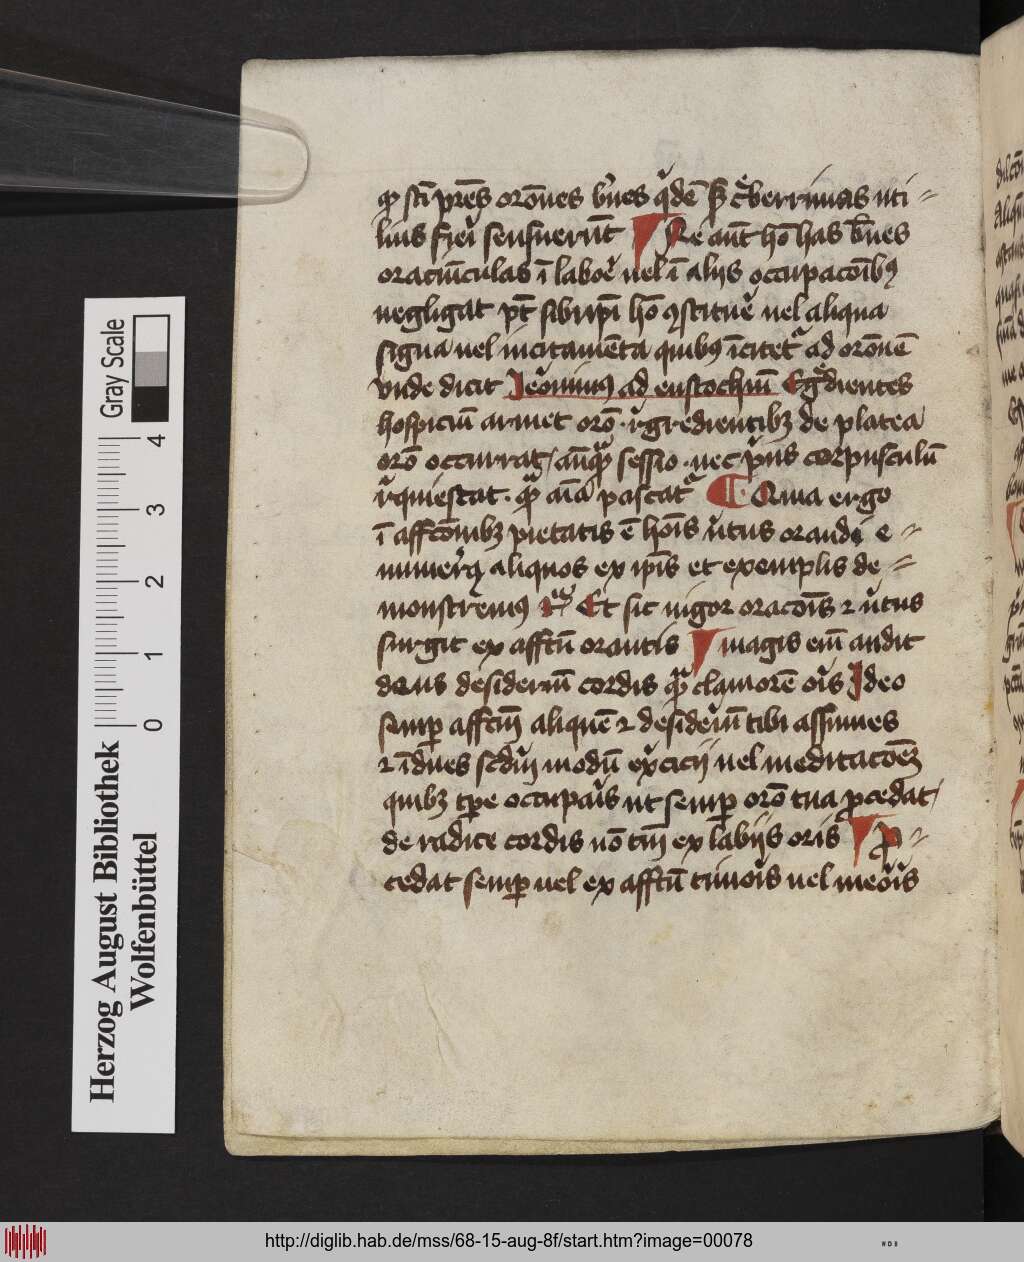 ꝙ sci pres orones breues qidē sꝫ cͤberrimas uti⸗
lius fieri senserunt Ne aut hō has breues
oraciūculas ī labore uel ī alijs occupacoibꝰ
negligat pt sibi ipi hō ꝯstituere uel aliqua
signa uel incitamēta quibꝰ īcitet᷑ ad oronē
vnde dicit Jeronimꝰ ad eustochiū Egredientes
hospiciū armet orō · regredientibꝫ de platea
orō occurrat / anqᷓ sessio · nec prius corpusculū
requiescat · qᷓ aīa pascat᷑ Quia ergo
ī affcōnibꝫ pietatis ē hois uirtus orandi e⸗
numerēꝰ aliquos ex ipis et exemplis de⸗
monstremꝰ Et sic uigor oracois ⁊ uirtus
surgit ex afftū orantis magis eni audit
deus desideriū cordis qᷓ clamorē oris Ideo
semꝑ affctū aliquē ⁊ desideriū tibi assumes
⁊ īdues scdm modū exercicij uel meditacoēs
quibꝫ tꝑe occuparis ut semꝑ orō tua ꝓcedat /
de radice cordis nō tm ex labijs oris ꝓ⸗
cedat semꝑ uel ex afftū timoris uel meroris
Herzog August Bibliothek
Wolfenbüttel
0 1 2 3 4
Gray Scale
http://diglib.hab.de/mss/68-15-aug-8f/start.htm?image=00078